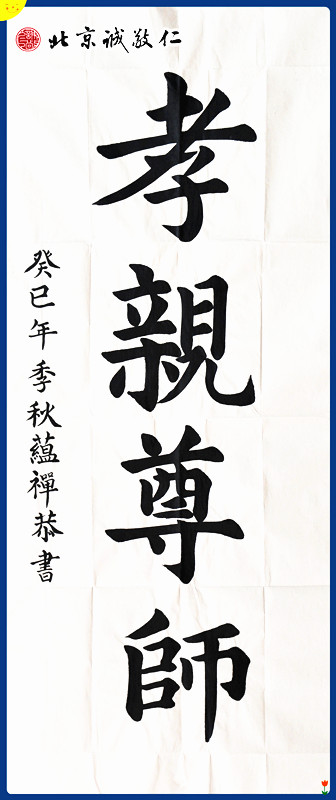 北京诚敬仁
孝親尊師
癸巳年季秋蘊禪恭書